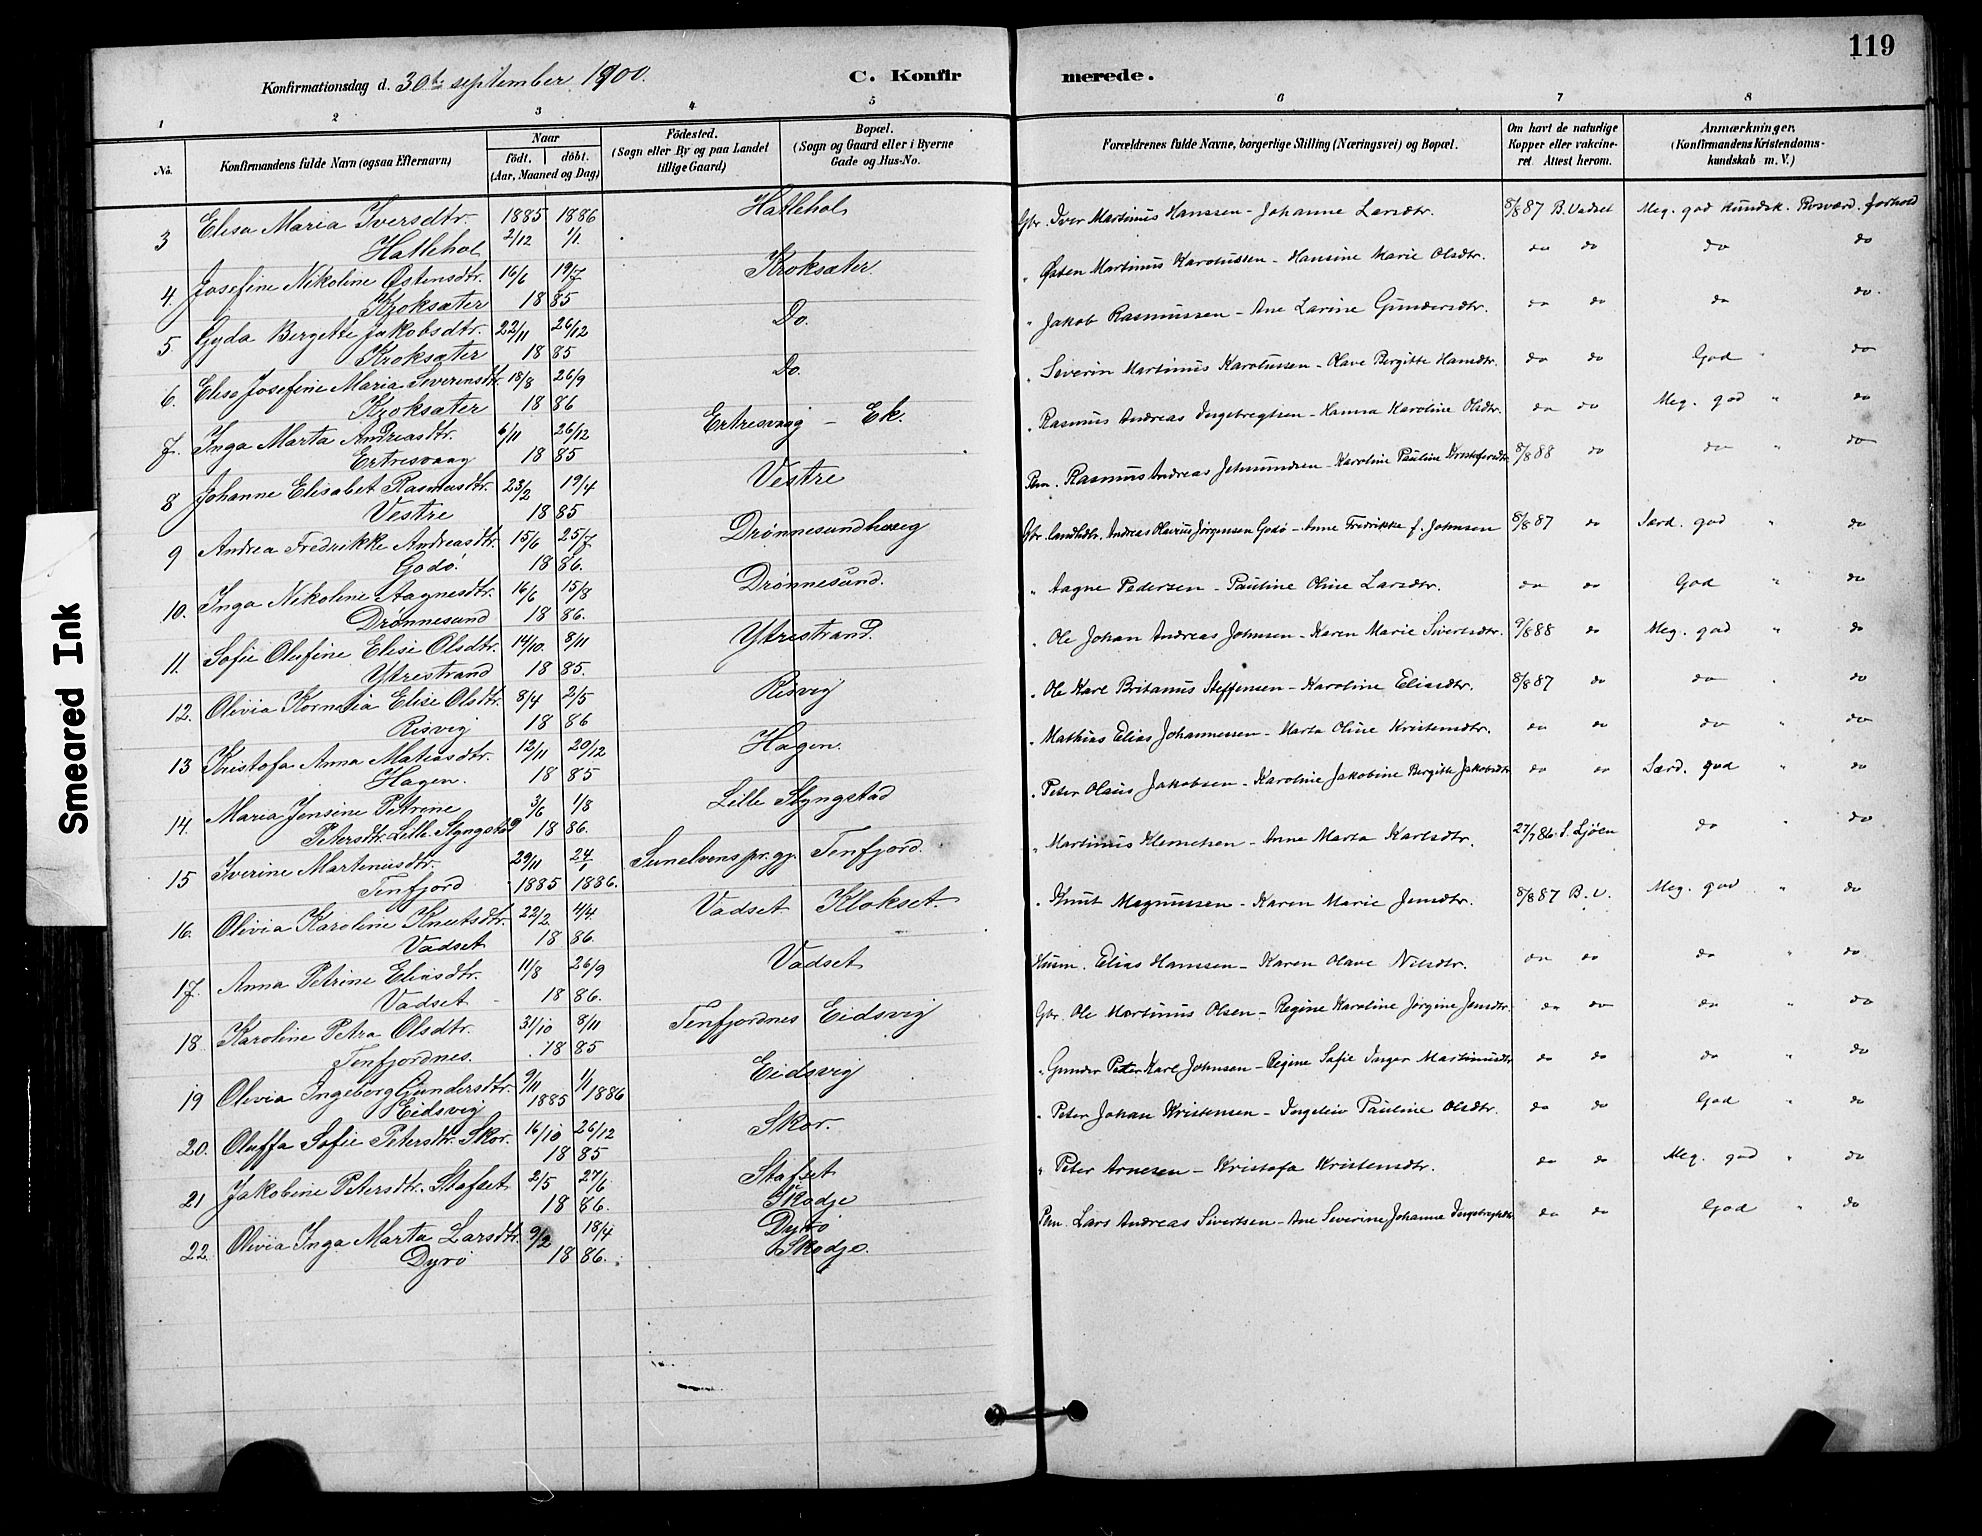 119
Konfirmationsdag d. 30te september 1900.
C. Konfirmerede.
1 2 3 4 5 6 7 8
No.
Konfirmandens fulde Navn (ogsaa Efternavn)
Naar
født. døbt.
(Aar, Maaned og Dag)
Fødested.
(Sogn eller By og paa Landet
tillige Gaard)
Bopæl.
(Sogn og Gaard eller i Byerne
Gade og Hus-No.
Forældrenes fulde Navne, borgerlige Stilling (Næringsvei) og Bopæl.
Om havt de naturlige
Kopper eller vakcine-
ret. Attest herom.
Anmærkninger.
(Konfirmandens Kristendoms-
kundskab m. V.)
3 Elisa Maria Iversdtr. 1885 1886 Hatlehol Gbr. Iver Martinus Hanssen - Johanne Larsdtr. 8/8 87 B. Vadset Meg. god kundsk. Rosværd. forhold
Hatlehol 2/12 1/1
4. Josefine Nikoline Østensdtr. 16/6 19/7 Kroksæter " Østen Martinus Karolussen - Hansine Marie Olsdtr. do do do do
Kroksæter 18 85
5 Gyda Bergette Jakobsdtr. 22/11 26/12 Do. " Jakob Rasmussen - Ane Larine Gundersdtr. do do do do.
Kroksæter 18 85
6. Elise Josefine Maria Severinsdtr. 18/8 26/9 Do. " Severin Martinus Karolussen - Olave Bergitte Hansdtr. do do God " do
Kroksæter 18 86
7. Inga Marta Andreasdtr. 6/11 26/12 Ertresvaag - Ek. " Rasmus Andreas Ingebregtsen - Hanna Karoline Olsdtr. do do Meg. god " do
Ertresvaag 18 85
8 Johanne Elisabet Rasmusdtr. 23/2 19/4 Vestre Rasmus Andreas Jetmundsen - Karoline Pauline Kristofersdtr. 8/8 88 do do " do
Vestre 18 85
9 Andrea Fredrikke Andreasdtr. 15/6 25/7 Drønnesundhaug Gbr. Landhdlr. Andreas Olaus Jørgensen Godø - Anne Fredrikke f. Johnsen 8/8 87 do Særd. god " do
Godø. 18 86.
10. Inga Nikoline Aagnesdtr. 16/6 15/8 Drønnesund. " Aagne Pedersen - Pauline Oline Larsdtr. do do God " do
Drønnesund 18 86.
11. Sofie Olufine Elise Olsdtr. 14/10. 8/11 Ytrestrand. " Ole Johan Andreas Johnsen - Karen Marie Sivertsdtr. 9/8 88 do Meg. god " do
Ytrestrand 18 85.
12. Olivia Kornelia Elise Olsdtr. 8/4 2/5 Risvig " Ole Karl Britanus Steffensen - Karoline Eliasdtr. 8/8 87 do do " do
Risvig 18 86
13 Kristofa Anna Matiasdtr. 12/11 20/12 Hagen. " Mathias Elias Johannessen - Marta Oline Kristensdtr. do do do " do
Hagen. 18 85
14. Maria Jensine Petrine 3/6 1/8 Lille Slyngstad " Peter Olaus Jakobsen - Karoline Jakobine Bergitte Jakobsdtr. do do Særd. god " do
Petersdtr. Lille Slyngstad 18 86.
15 Iverine Martinusdtr. 29/11 24/1 Sunelvens pr.gj. Tenfjord. " Martinus Klemetsen - Anne Marta Karlsdtr. 27/7 86. S. Ljøen do " do
Tenfjord 1885 1886.
16. Olivia Karoline Knutsdtr. 22/2 4/4. Vadset Klokset. " Knut Magnussen - Karen Marie Jensdtr. 8/8 87 B. V. Meg. god " do
Vadset 18 86.
17. Anna Petrine Eliasdtr. 11/8 26/9 Vadset Husm. Elias Hanssen - Karen Olave Nilsdtr. do do do " do
Vadset 18 86.
18 Karoline Petra Olsdtr. 31/10 8/11 Tenfjordnes Eidsvig Gbr. Ole Martinus Olsen - Regine Karoline Jørgine Jensdtr. do do do " do
Tenfjordnes. 18 85
19 Olivia Ingeborg Gundersdtr. 9/11 1/1 Eidsvig " Gunder Peter Karl Johnsen - Regine Sofie Inger Martinusdtr. do do do " do
Eidsvig 1885 1886
20. Oluffa Sofie Petersdtr. Skor. 16/10 26/12 Skor. " Peter Johan Kristensen - Ingeleiv Pauline Olsdtr. do do God " do
18 85
21 Jakobine Petersdtr. Stafset 2/5 27/6 Stafset " Peter Arnesen - Kristofa Kristensdtr. do do Meg. god " do
18 86. i Skodje
22. Olivia Inga Marta Larsdtr. 9/2 18/4 Dyrø Lars Andreas Sivertsen - Ane Severine Johanne Ingebregtsdtr. do do God " do
Dyrø 18 86. i Skodje.
Smeared Ink